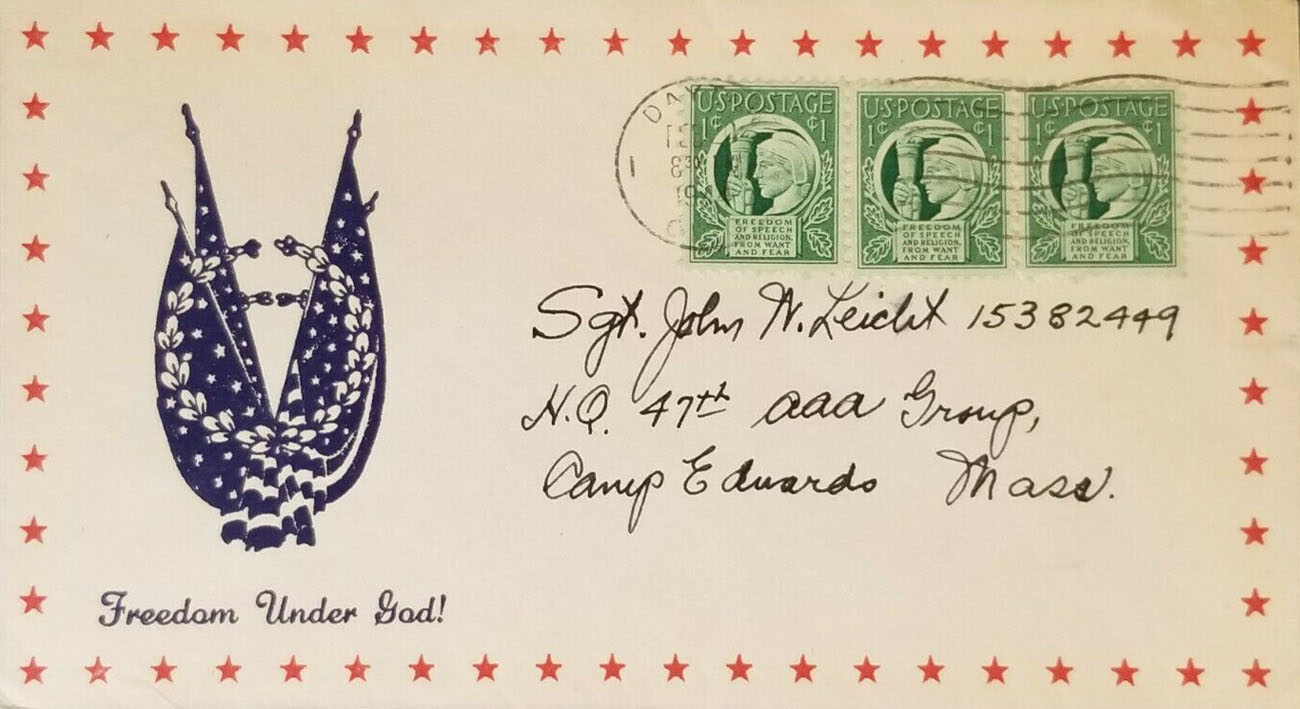 U.S. POSTAGE
1¢ ¢1
FREEDOM
OF SPEECH
AND RELIGION,
FROM WANT
AND FEAR
U.S. POSTAGE
1¢ ¢1
FREEDOM
OF SPEECH
AND RELIGION,
FROM WANT
AND FEAR
U.S. POSTAGE
1¢ ¢1
FREEDOM
OF SPEECH
AND RELIGION,
FROM WANT
AND FEAR
1
Sgt. John W. Leicht 15382449
H.Q. 47th aaa Group,
Camp Edwards Mass.
Freedom Under God!